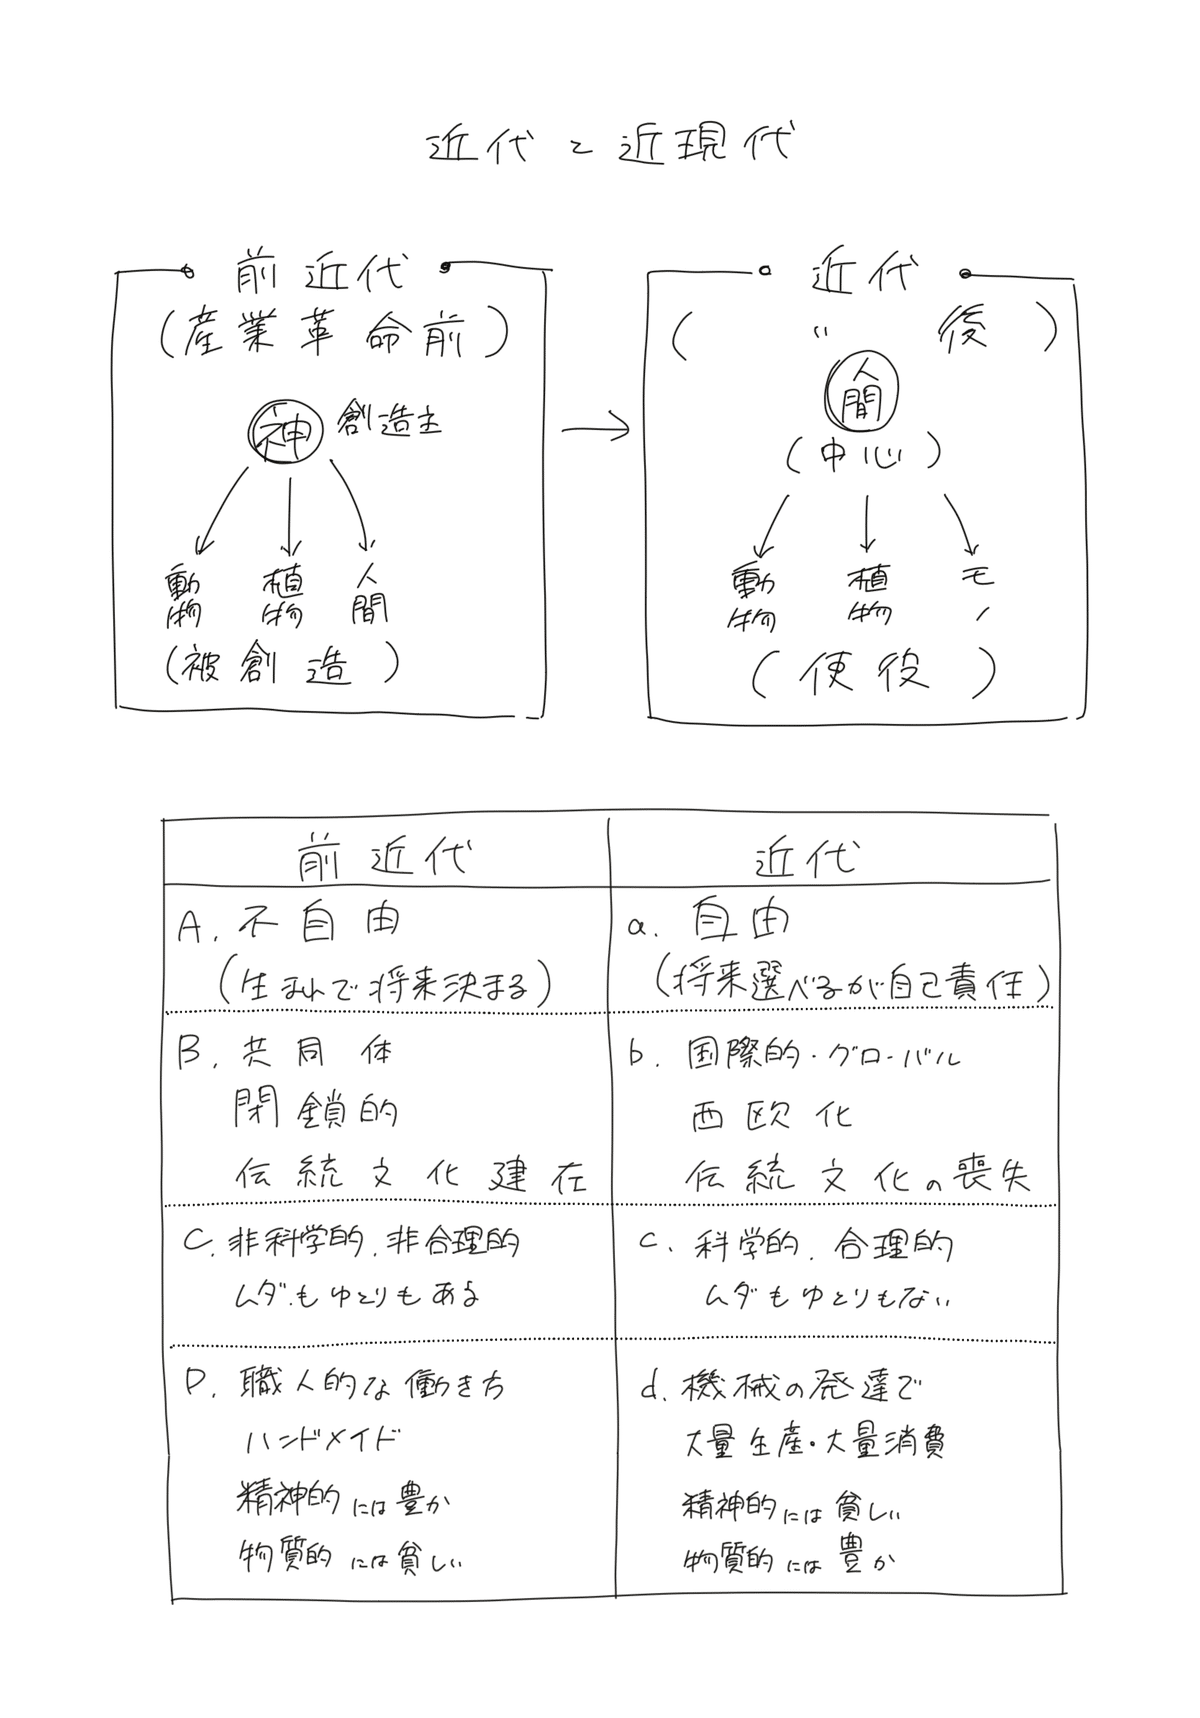 近代と近現代
前近代
(産業革命前)
神 創造主
動物 植物 人間
(被創造)
→
近代
( 〃 後)
人間
(中心)
動物 植物 モノ
(使役)
前近代
A. 不自由
(生まれで将来決まる)
B. 共同体
閉鎖的
伝統文化建在
C. 非科学的.非合理的
ムダ.もゆとりもある
D. 職人的な働き方
ハンドメイド
精神的には豊か
物質的には貧しい
近代
a. 自由
(将来選べるが自己責任)
b. 国際的・グローバル
西欧化
伝統文化の喪失
c. 科学的.合理的
ムダもゆとりもない
d. 機械の発達で
大量生産・大量消費
精神的には貧しい
物質的には豊か